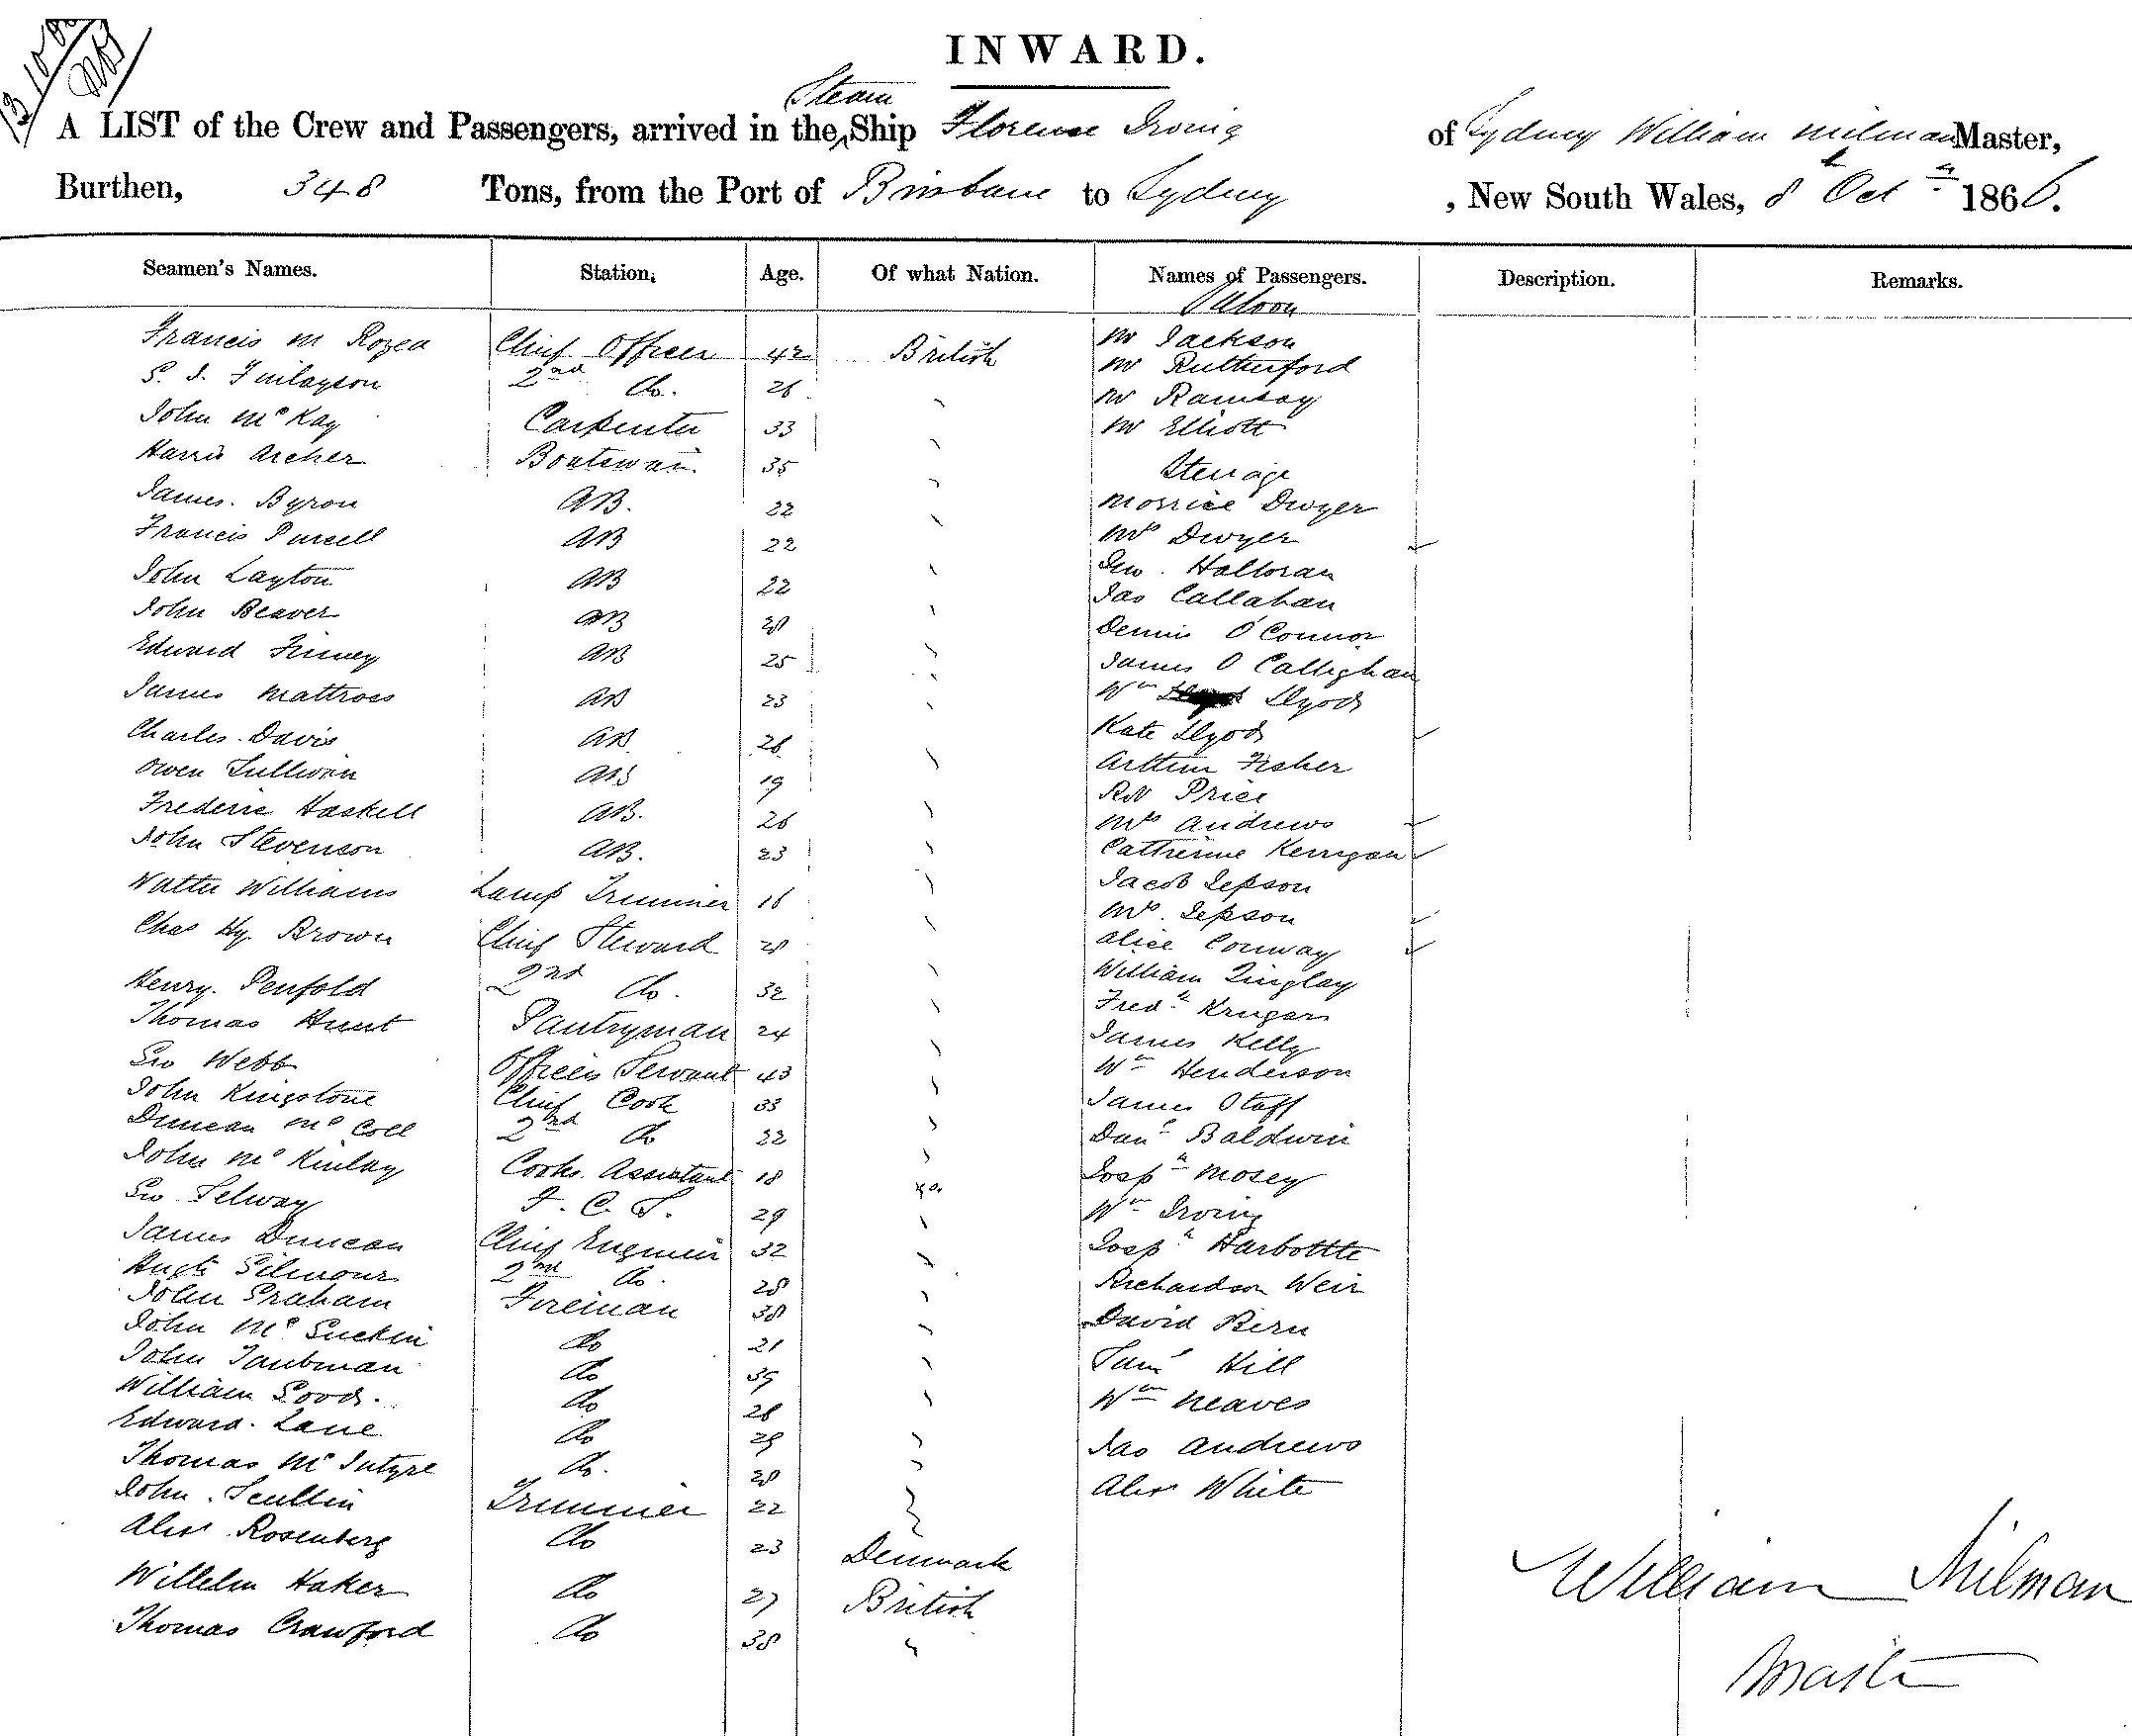 INWARD.
A LIST of the Crew and Passengers, arrived in the Steam Ship Florence Irving of Sydney William Milman Master,
Burthen, 348 Tons, from the Port of Brisbane to Sydney , New South Wales, 8th Octr 1866.
Seamen's Names. Station. Age. Of what Nation. Names of Passengers. Description. Remarks.
Saloon
Francis M Rozea Chief Officer 42 British Mr Jackson
S. I. Finlayson 2nd do. 26 Mr Rutherford
John McKay Carpenter 33 Mr Ramsay
Harris Archer Boatswain 35 Mr Elliott
Steerage
James Byron AB. 22 Morrice Dwyer
Francis Purcell AB 22 Mrs Dwyer
John Layton AB 22 Geo. Halloran
John Beaver AB Jas Callahan
Edward Finney AB 25 Dennis O'Connor
James Mattross AB 23 James O Callighan
Charles Davis AB. 26 Wm Llyods
Owen Sullivan AB 19 Kate Llyods
Frederic Haskell AB. 26 Arthur Fisher
John Stevenson AB. 23 Price
Walter Williams Lamp Trimmer 16 Mrs Andrews
Chas Hy. Brown Chief Steward Catherine Kerrigan
Henry Penfold 2nd do. 32 Jacob Jepson
Thomas Hunt Pantryman 24 Mrs. Jepson
Geo Webb Officers Servant 43 Alice Conway
John Kingstone Chief Cook 33 William Tinglay
Duncan McColl 2nd do 22 Fredk Krugar
John McKinlay Cooks Assistant 18 James Kelly
Geo Selway F. C. S. 29 Wm Henderson
James Duncan Chief Engineer 32 James Staff
Hugh Gilmour 2nd do. 28 Danl Baldwin
John Graham Fireman 38 Josph Mosey
John McGuckin do 21 Wm Irving
John Taubman do 39 Josph Harbottle
William Good. do 26 Richardson Weir
Edward Lane do 29 David Bern
Thomas McIntyre do. Saml Hill
John Scullin Trimmer 22 Wm Neaves
Alexr Rosenberg do 23 Denmark Jas Andrews
Willelm Haker do 27 British Alexr White
Thomas Crawford do 38 "
William Milman
Master